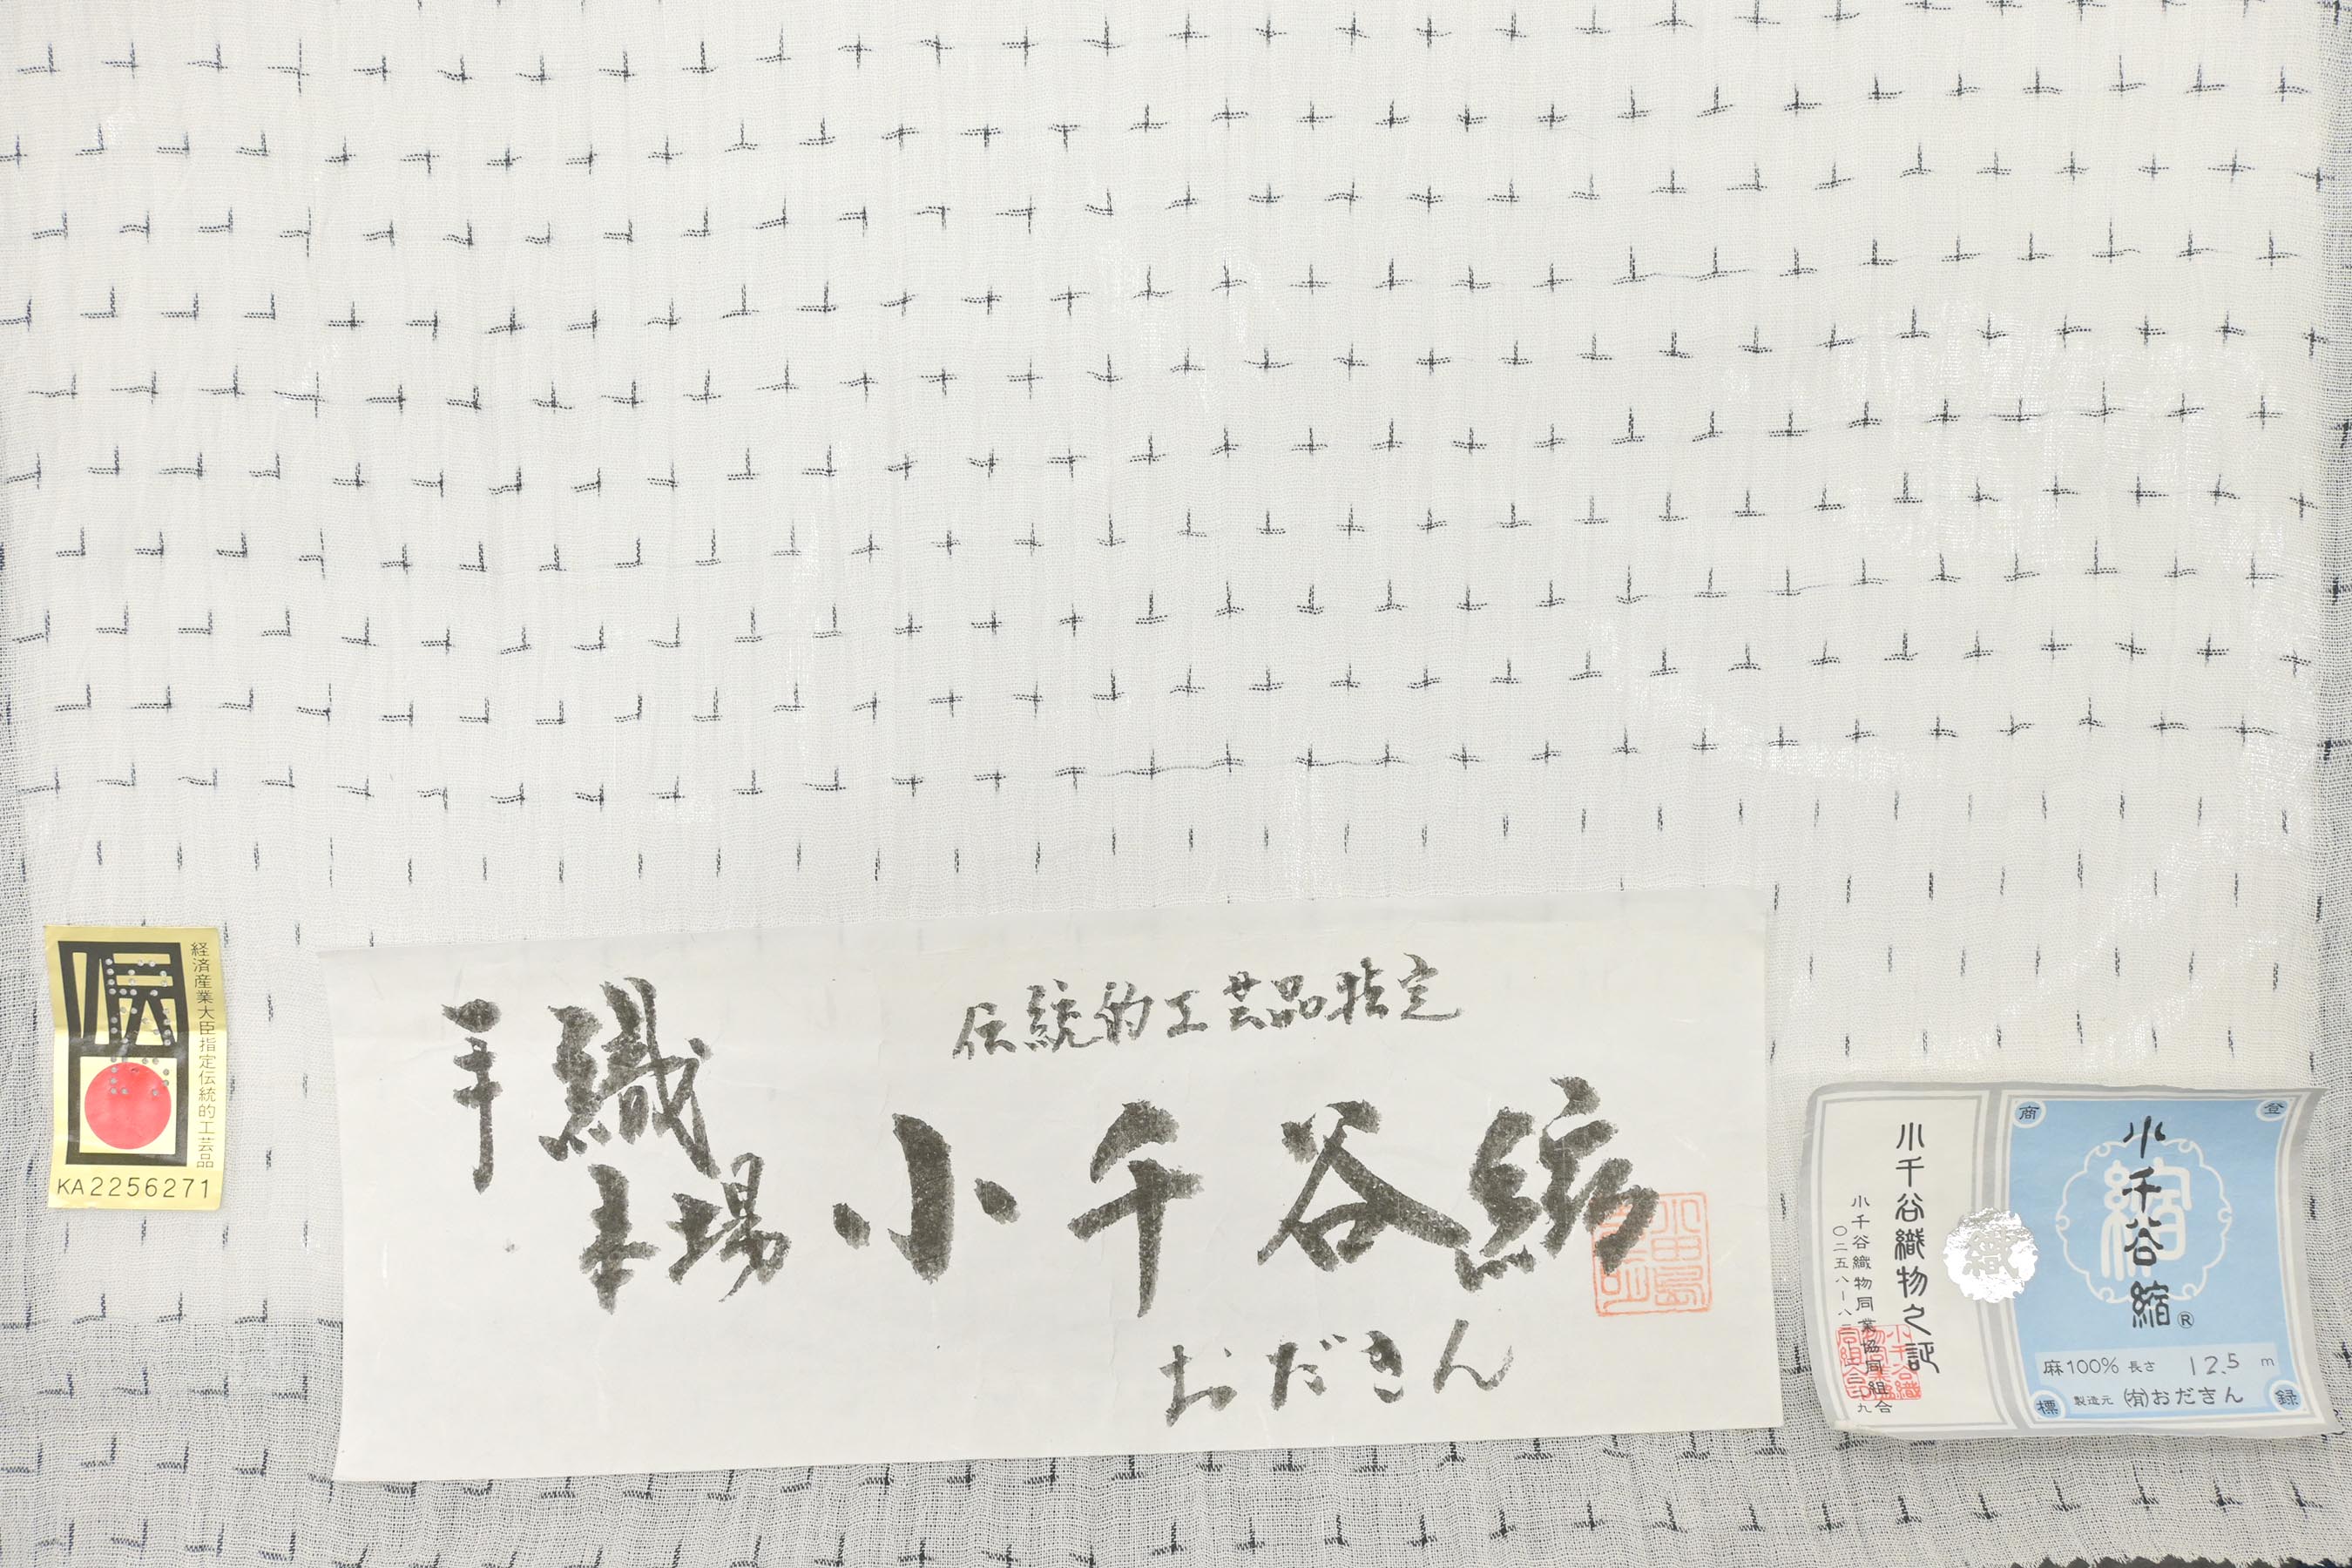 経済産業大臣指定伝統的工芸品
KA2256271
伝統的工芸品指定
手織
本場
小千谷縮
おだきん
小千谷織物之証
小千谷織物同業協同組合
織
商
登
標
録
縮
小千谷縮®
麻100% 長さ 12.5 m
製造元 (有)おだきん